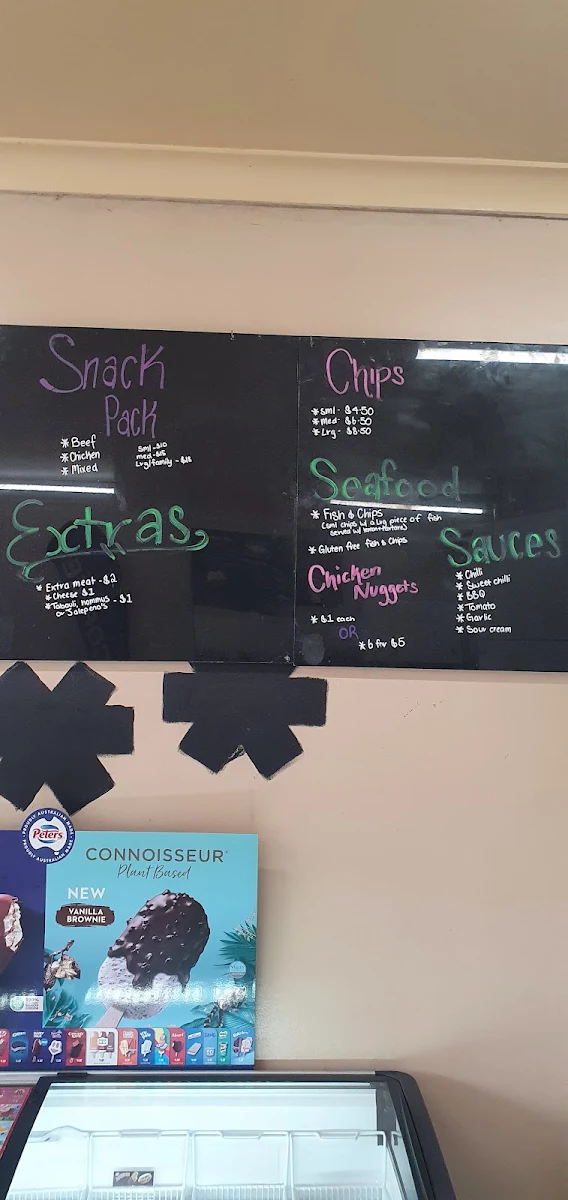 Snack
Pack
* Beef
* Chicken
* Mixed
Sml - $10
med - $15
Lrg/family - $18
Extras
* Extra meat - $2
* Cheese $1
* Tabouli, hommus - $1
or Jalepeno's
Chips
* Sml - $4.50
* Med - $6.50
* Lrg - $8.50
Seafood
* Fish & Chips
(sml chips w/ a Lrg piece of fish
served w/ lemon + tartare)
* Gluten free fish & Chips
Chicken
Nuggets
* $1 each
OR
* 6 for $5
Sauces
* Chilli
* Sweet chilli
* BBQ
* Tomato
* Garlic
* Sour cream
PROUDLY AUSTRALIAN MADE
Peters
PROUDLY AUSTRALIAN MADE
CONNOISSEUR
Plant Based
NEW
VANILLA
BROWNIE